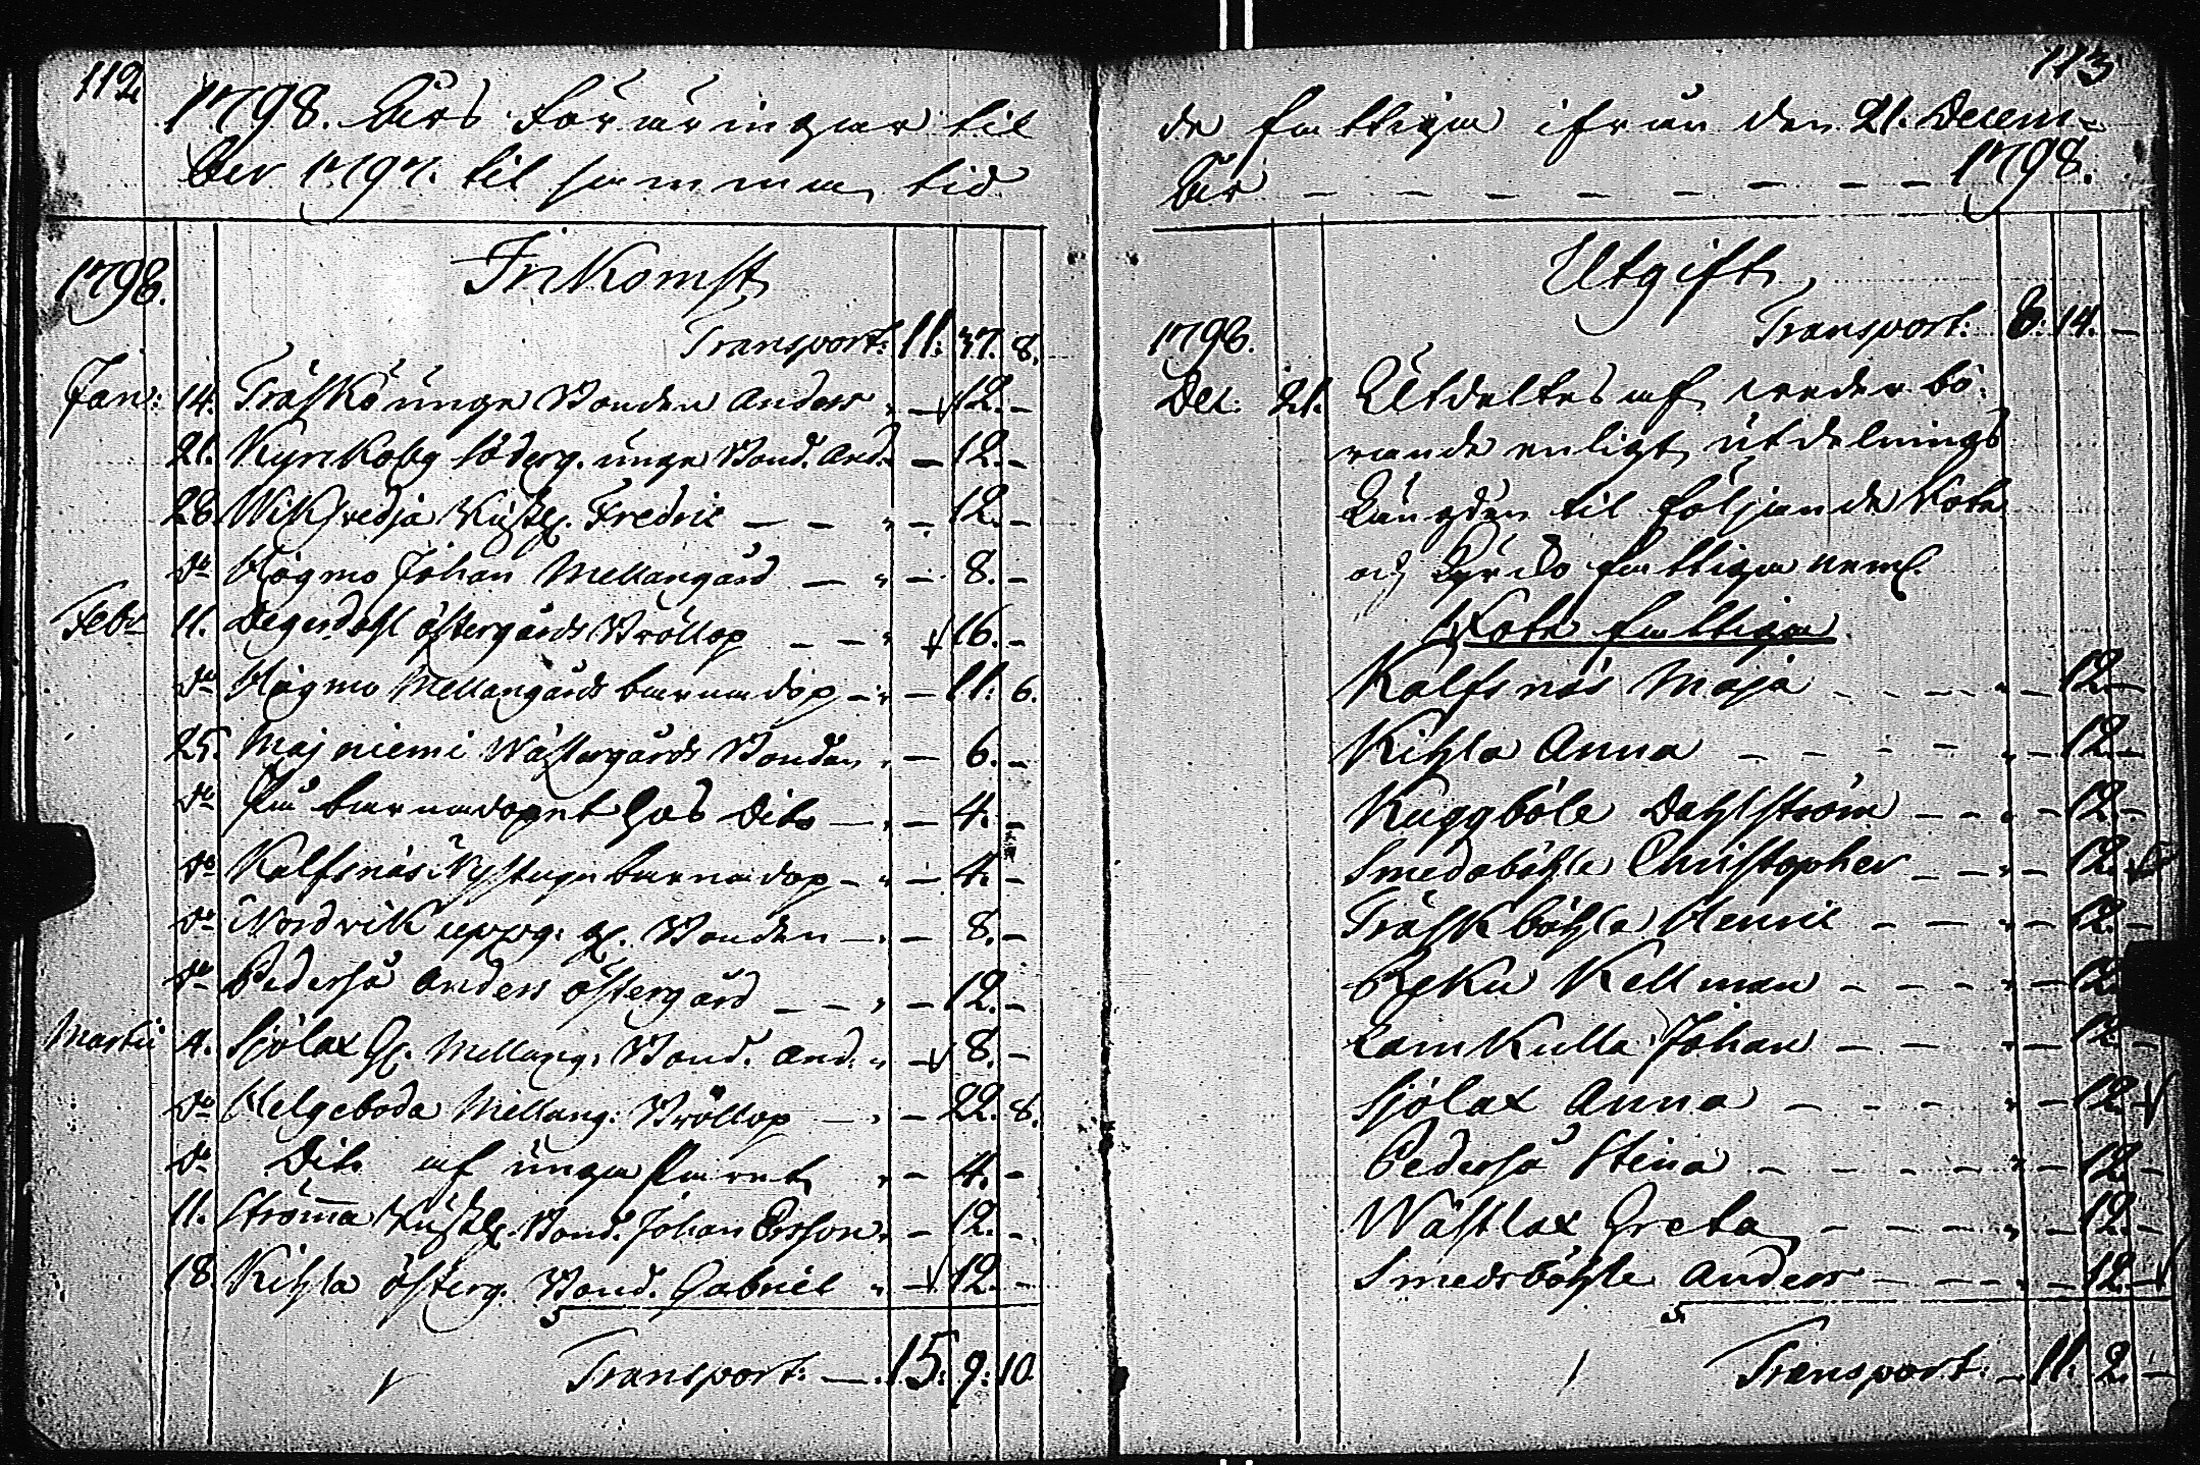 112
1798. Års Föräringar til
ber 1797. til samma tid
1798.
Inkomst
Transport: 11. 37. 8.
Jan: 14. Träskö unge Bonden Anders " — 12. —
21. Kyrkoby söderg. unga Bond. And. " — 12. —
28. Wiksvedja Fredric — — " — 12. —
do Högmo Johan Mellangård — " — 8. —
Febr 11. Degerdahl östergårds Bröllop — — " 16. —
do Högmo Mellangårds barnadop — " — 11. 6.
25. Majniemi Wästergårds Bonden " — 6. —
do På barnadopet hos Dito — " — 4. —
do Kalfsnäs Nystugu barnadop — " — 4. —
do Nordvik uppg. gl. Bonden — " — 8. —
do Pederså Anders östergård — — " — 12. —
Martii 4. Sjölax gl. Mellang. Bond. And. " — 8. —
do Helgeboda Mellang: Bröllop — " — 22. 8.
do Dito af unga Paret " — 4. —
11. Strömma Bond. Johan Ersson " — 12. —
18. Kihla österg. Bond. Gabriel " — 12. —
Transport: — 15. 9. 10.
113
de fattiga ifrån den 21. Decem-
ber — — — — — — — — 1798.
Utgift
1798. Transport: 8. 14. —
Dec: 21. Utdeltes af wederbö-
rande enligt utdelnings
Längden til följande Rote
och fattiga neml.
Rote fattiga
Kalfsnäs Maja — — — " — 12. —
Kihla Anna — — — — " — 12. —
Kuggböle Dahlström — — " — 12. —
Smedsböhle Christopher — — " — 12.
Träskböhle Henric — — " — 12. —
Reku Kellman — — — " — 12.
Lamkulla Johan — — — " — 12. —
Sjölax Anna — — — — " — 12. —
Pederså Stina — — — — " — 12. —
Wästlax Greta — — — — " — 12. —
Smedsböhle Anders — — — " — 12. —
Transport: — 11. 2. —